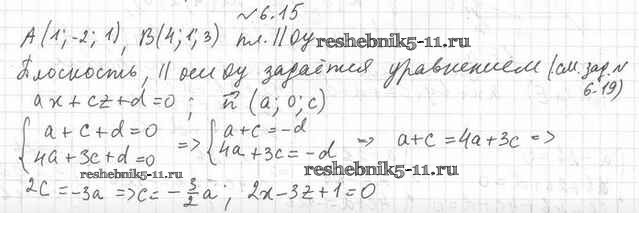 №6.15
A(1;-2;1), B(4;1;3) пл. || Oy
reshebnik5-11.ru
Плоскость, || оси Oy задаётся уравнением (см. зад. № 6.19)
ax+cz+d=0; n⃗ (a; 0; c)
{ a+c+d=0 => { a+c=-d => a+c=4a+3c =>
{ 4a+3c+d=0 { 4a+3c=-d
reshebnik5-11.ru
reshebnik5-11.ru
2c=-3a => c=-3/2 a; 2x-3z+1=0